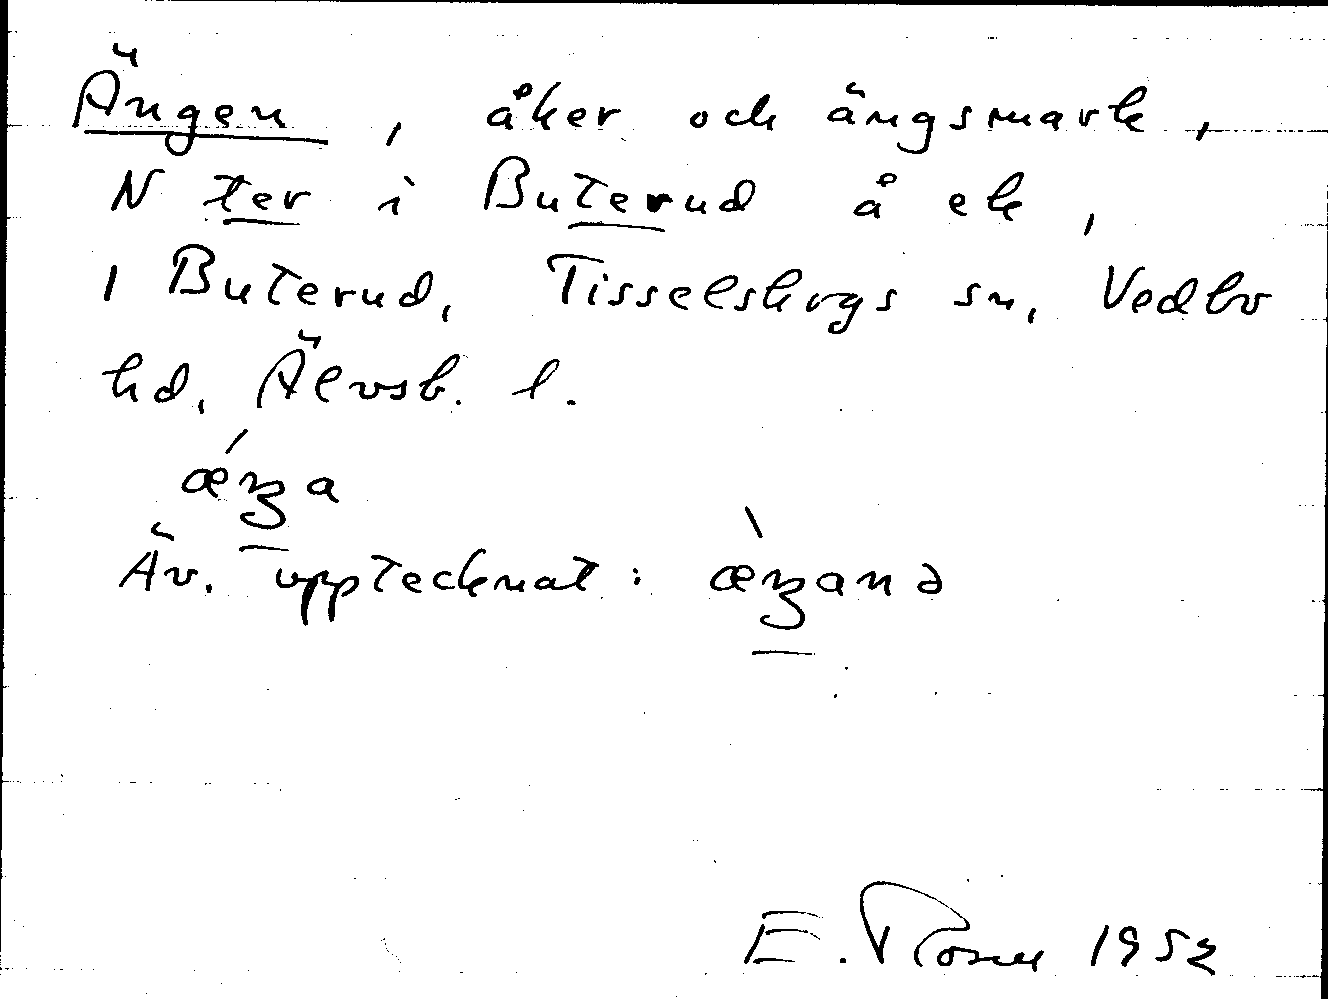 Ängen, åker och ängsmark,
N ter i Buterud å ek,
1 Buterud, Tisselskogs sn, Vedbo
hd, Älvsb. l.
ǽŋa
Äv. upptecknat: æ̀ŋanə
E. Rosell 1952